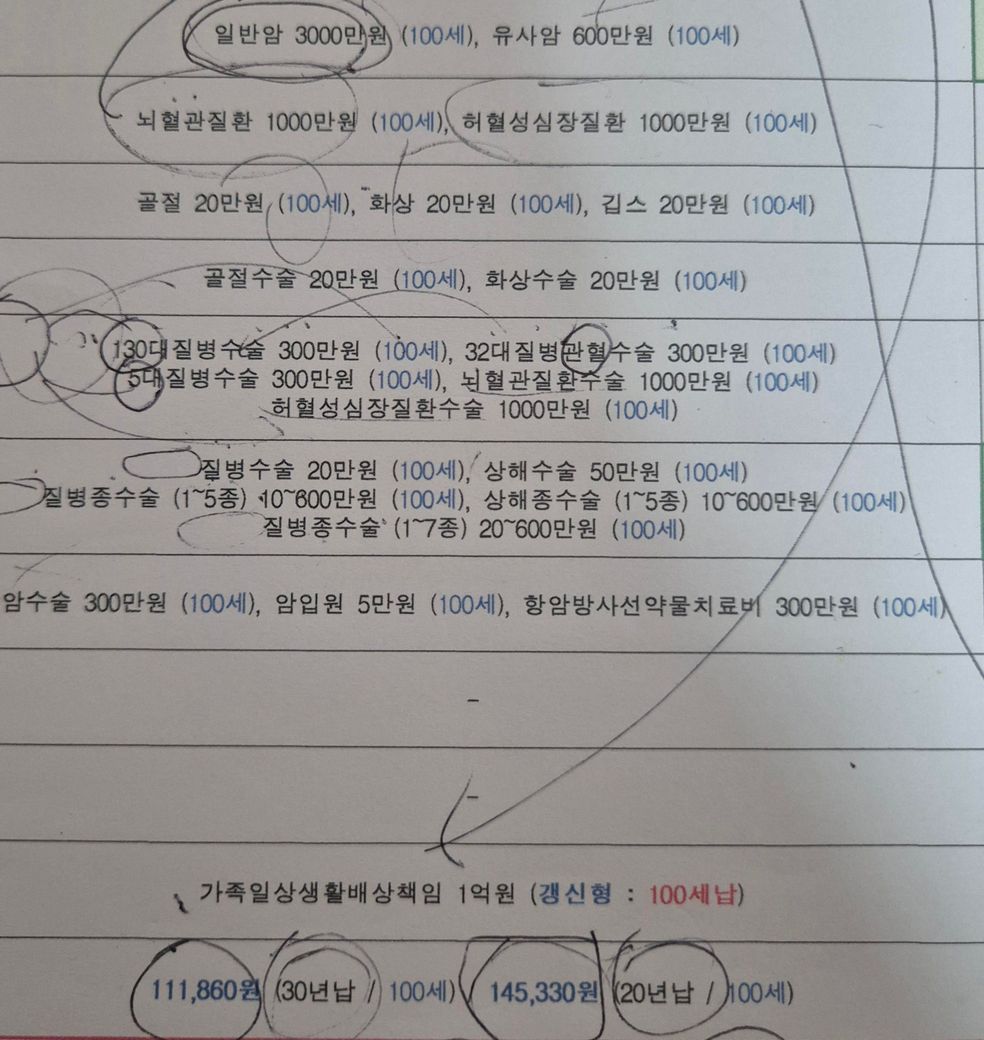 일반암 3000만원 (100세), 유사암 600만원 (100세)
뇌혈관질환 1000만원 (100세), 허혈성심장질환 1000만원 (100세)
골절 20만원 (100세), 화상 20만원 (100세), 깁스 20만원 (100세)
골절수술 20만원 (100세), 화상수술 20만원 (100세)
130대질병수술 300만원 (100세), 32대질병관혈수술 300만원 (100세)
5대질병수술 300만원 (100세), 뇌혈관질환수술 1000만원 (100세)
허혈성심장질환수술 1000만원 (100세)
질병수술 20만원 (100세), 상해수술 50만원 (100세)
질병종수술 (1~5종) 10~600만원 (100세), 상해종수술 (1~5종) 10~600만원 (100세)
질병종수술 (1~7종) 20~600만원 (100세)
암수술 300만원 (100세), 암입원 5만원 (100세), 항암방사선약물치료비 300만원 (100세)
-
-
가족일상생활배상책임 1억원 (갱신형 : 100세납)
111,860원 (30년납 / 100세) 145,330원 (20년납 / 100세)